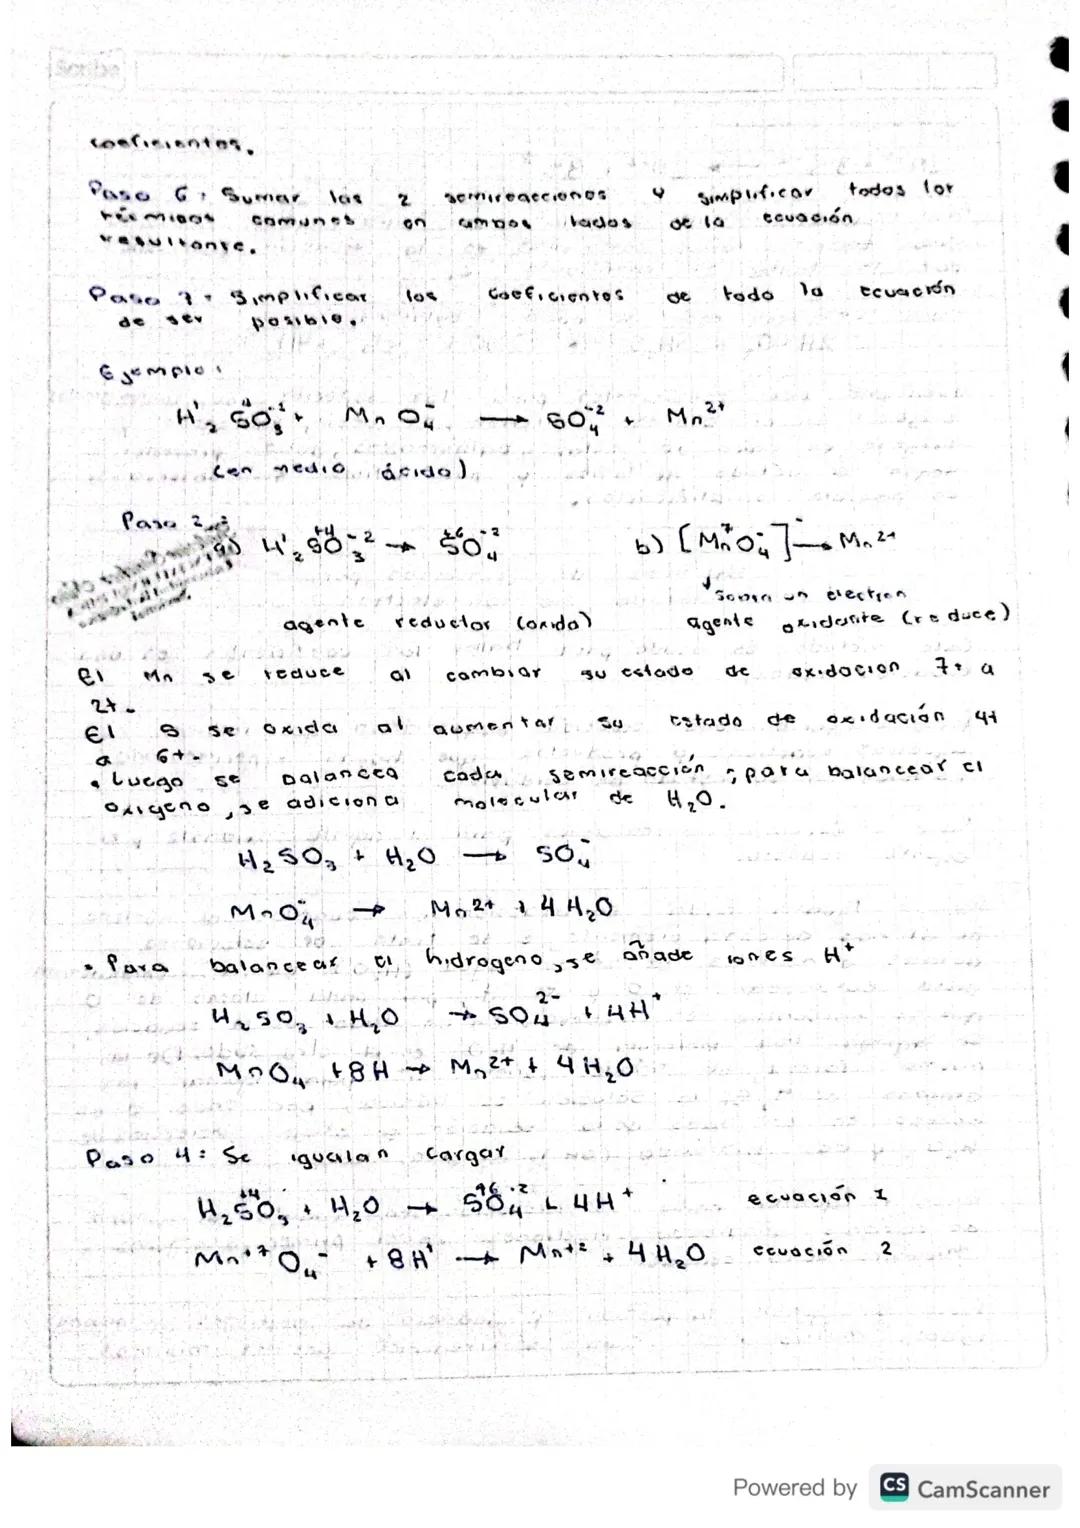 Scribe
coeficientes.
Paso 6: Sumar las 2 semireacciones y simplificar todos los
términos comunes en ambos lados de la ecuación
resultante.
Paso 7: Simplificar los coeficientes de todo la ecuación
de ser posible.
Ejemplo:
H¹₂ S⁴O₃⁻² + MnO₄⁻ → SO₄⁻² + Mn²⁺
(en medio ácido)
Paso 2:
a) H¹₂S⁺⁴O₃⁻² → S⁺⁶O₄⁻² b) [Mn⁷O₄⁻]⁻ → Mn²⁺
↓ un electron
agente reductor (oxida) agente oxidante (reduce)
El Mn se reduce al cambiar su estado de oxidacion 7+ a
2+.
El S se oxida al aumentar su estado de oxidación 4+
a 6+.
• Luego se balancea cada semireacción; para balancear el
oxigeno, se adiciona molecular de H₂O.
H₂SO₃ + H₂O → SO₄⁻
MnO₄⁻ → Mn²⁺ + 4H₂O
• Para balancear el hidrogeno, se añade iones H⁺
H₂SO₃ + H₂O → SO₄²⁻ + 4H⁺
MnO₄ + 8H → Mn²⁺ + 4H₂O
Paso 4: Se igualan cargar
H₂S⁺⁴O₃ + H₂O → S⁺⁶O₄⁻² + 4H⁺ ecuación 1
Mn⁺⁷O₄⁻ + 8H⁺ → Mn⁺² + 4H₂O ecuación 2
Powered by CS CamScanner